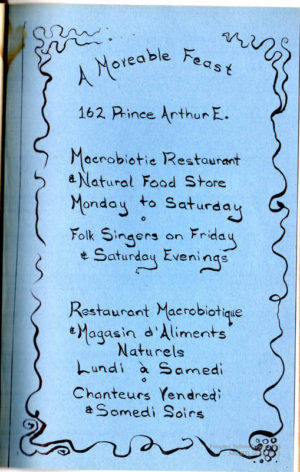 A Moveable Feast
162 Prince Arthur E.
Macrobiotic Restaurant
& Natural Food Store
Monday to Saturday
Folk Singers on Friday
& Saturday Evenings
Restaurant Macrobiotique
& Magasin d'Aliments
Naturels
Lundi à Samedi
Chanteurs Vendredi
& Samedi Soirs